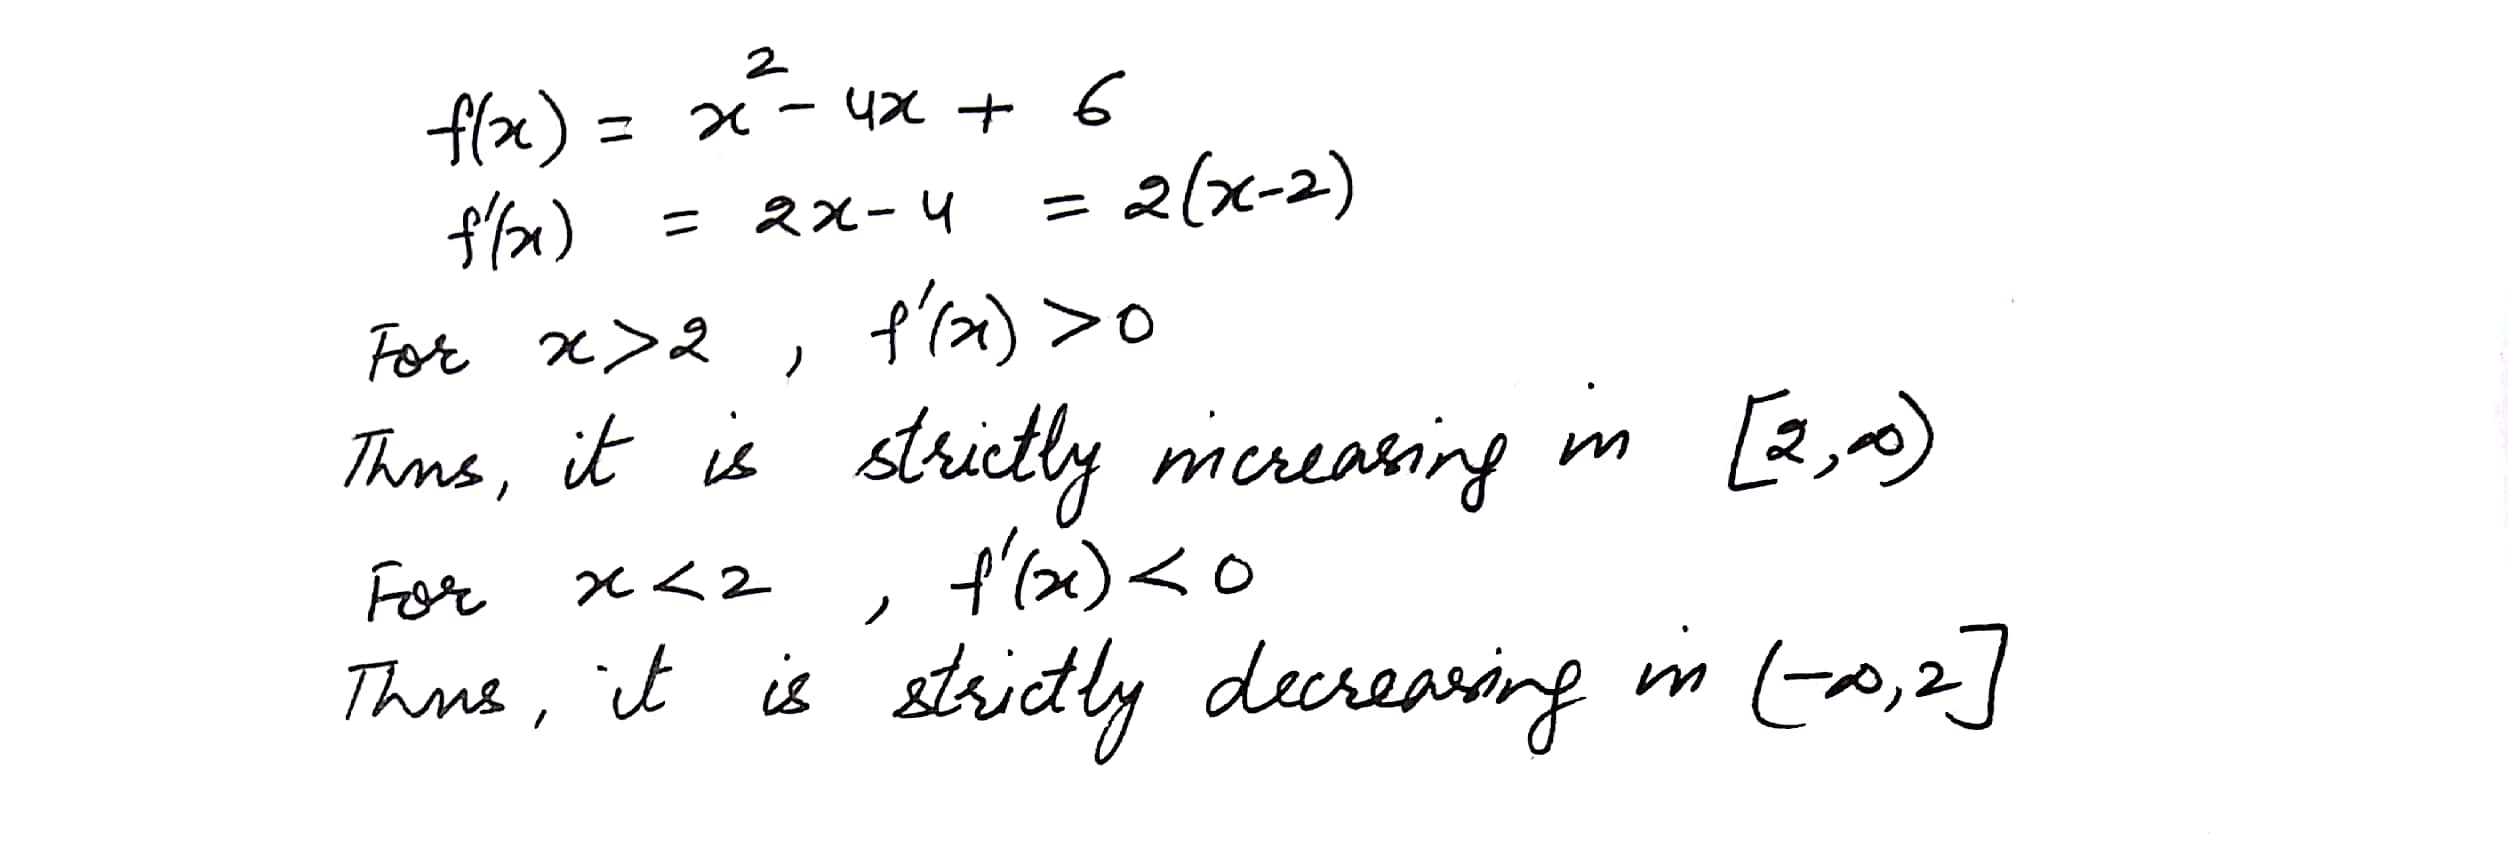 f(x) = x² - 4x + 6
f'(x) = 2x - 4 = 2(x-2)
For x>2 , f'(x) >0
Thus, it is strictly increasing in [2,∞)
For x<2 , f'(x)<0
Thus, it is strictly decreasing in (-∞,2]